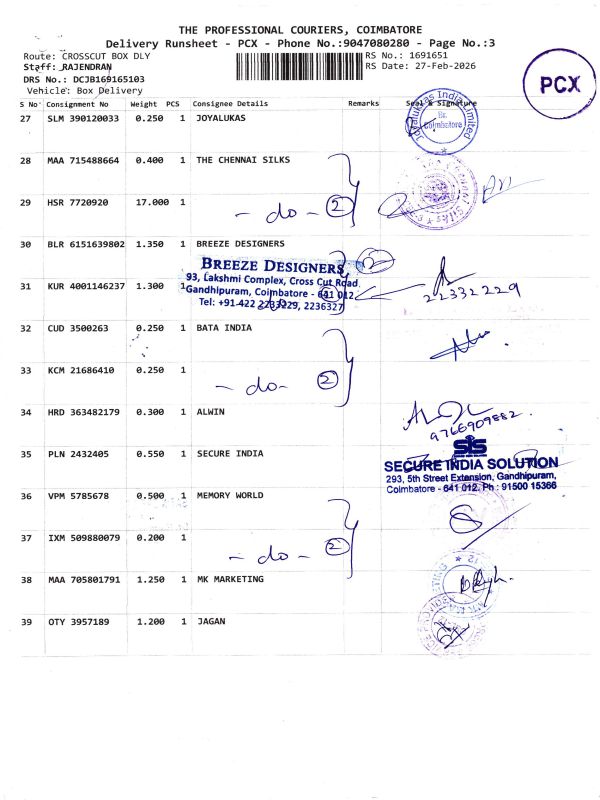 THE PROFESSIONAL COURIERS, COIMBATORE
Delivery Runsheet - PCX - Phone No.:9047080280 - Page No.:3
Route: CROSSCUT BOX DLY
Staff: RAJENDRAN
DRS No.: DCJB169165103
Vehicle: Box Delivery
RS No.: 1691651
RS Date: 27-Feb-2026
PCX
S No Consignment No Weight PCS Consignee Details Remarks Seal & Signature
27 SLM 390120033 0.250 1 JOYALUKAS
Joyalukkas India Limited
Br.
Coimbatore
28 MAA 715488664 0.400 1 THE CHENNAI SILKS
29 HSR 7720920 17.000 1
- do - 2
30 BLR 6151639802 1.350 1 BREEZE DESIGNERS
2
BREEZE DESIGNERS
31 KUR 4001146237 1.300 1
93, Lakshmi Complex, Cross Cut Road
Gandhipuram, Coimbatore - 641 012
Tel: +91-422 2233229, 2236327
22332229
32 CUD 3500263 0.250 1 BATA INDIA
33 KCM 21686410 0.250 1
- do - 2
34 HRD 363482179 0.300 1 ALWIN
9766909882
35 PLN 2432405 0.550 1 SECURE INDIA
SIS
SECURE INDIA SOLUTION
293, 5th Street Extension, Gandhipuram,
Coimbatore - 641 012. Ph : 91500 15366
36 VPM 5785678 0.500 1 MEMORY WORLD
37 IXM 509880079 0.200 1
- do - 2
38 MAA 705801791 1.250 1 MK MARKETING
39 OTY 3957189 1.200 1 JAGAN